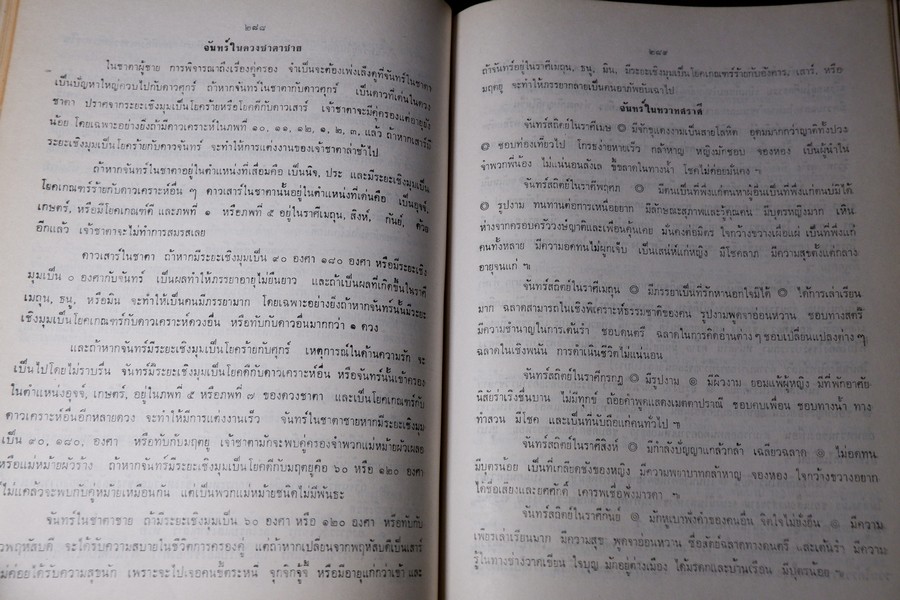 ๒๘๘
จันทร์ในดวงชาตาชาย
ในชาตาผู้ชาย การพิจารณาถึงเรื่องคู่ครอง จำเป็นจะต้องเพ่งเล็งดูที่จันทร์ในชาตา
เป็นปัญหาใหญ่ควบไปกับดาวศุกร์ ถ้าหากจันทร์ในชาตากับดาวศุกร์ เป็นดาวที่เด่นในดวง
ชาตา ปราศจากระยะเชิงมุมเป็นโยคร้ายหรือโยคดีกับดาวเสาร์ เจ้าชาตาจะมีคู่ครองแต่อายุยัง
น้อย โดยเฉพาะอย่างยิ่งถ้ามีดาวเคราะห์ในภพที่ ๑๐, ๑๑, ๑๒, ๑, ๒, ๓, แล้ว ถ้าหากเสาร์มี
ระยะเชิงมุมเป็นโยคร้ายกับดาวจันทร์ จะทำให้การแต่งงานของเจ้าชาตาล่าช้าไป
ถ้าหากจันทร์ในชาตาอยู่ในตำแหน่งที่เสื่อมคือ เป็นนิจ, ประ และมีระยะเชิงมุมเป็น
โยคเกณฑ์ร้ายกับดาวเคราะห์อื่น ๆ ดาวเสาร์ในชาตานั้นอยู่ในตำแหน่งที่เด่นคือ เป็นอุจจ์,
เกษตร์, หรือมีโยคเกณฑ์ดี และภพที่ ๑ หรือภพที่ ๕ อยู่ในราศีเมถุน, สิงห์, กันย์, ด้วย
อีกแล้ว เจ้าชาตาจะไม่ทำการสมรสเลย
ดาวเสาร์ในชาตา ถ้าหากมีระยะเชิงมุมเป็น ๙๐ องศา ๑๘๐ องศา หรือมีระยะเชิง
มุมเป็น ๐ องศากับจันทร์ เป็นผลทำให้ภรรยาอายุไม่ยืนยาว และถ้าเป็นผลที่เกิดขึ้นในราศี
เมถุน, ธนู, หรือมีน จะทำให้เป็นคนมีภรรยามาก โดยเฉพาะอย่างยิ่งถ้าหากจันทร์นั้นมีระยะ
เชิงมุมเป็นโยคเกณฑ์กับดาวเคราะห์ดวงอื่น หรือทับกับดาวอื่นมากกว่า ๑ ดวง
และถ้าหากจันทร์มีระยะเชิงมุมเป็นโยคร้ายกับศุกร์ เหตุการณ์ในด้านความรัก จะ
เป็นไปโดยไม่ราบรื่น จันทร์มีระยะเชิงมุมเป็นโยคดีกับดาวเคราะห์อื่น หรือจันทร์นั้นเข้าครอง
ในตำแหน่งอุจจ์, เกษตร์, อยู่ในภพที่ ๕ หรือภพที่ ๗ ของดวงชาตา และเป็นโยคเกณฑ์กับ
ดาวเคราะห์อื่นอีกหลายดวง จะทำให้มีการแต่งงานเร็ว จันทร์ในชาตาชายหากมีระยะเชิงมุม
เป็น ๙๐, ๑๘๐, องศา หรือทับกับมฤตยู เจ้าชาตามักจะพบคู่ครองจำพวกแม่หม้ายผัวเผลอ
หรือแม่หม้ายผัวร้าง ถ้าหากจันทร์มีระยะเชิงมุมเป็นโยคดีกับมฤตยูคือ ๖๐ หรือ ๑๒๐ องศา
ไม่แคล้วจะพบกับคู่หม้ายเหมือนกัน แต่เป็นพวกแม่หม้ายชนิดไม่มีพันธะ
จันทร์ในชาตาชาย ถ้ามีระยะเชิงมุมเป็น ๖๐ องศา หรือ ๑๒๐ องศา หรือทับกับ
พฤหัสบดี จะได้รับความสบายในชีวิตการครองคู่ แต่ถ้าหากเปลี่ยนจากพฤหัสบดีเป็นเสาร์
ไม่ค่อยได้รับความสุขนัก เพราะจะไปเจอคนขี้ตระหนี่ จุกจิกจู้จี้ หรือมีอายุแก่กว่าเข้า และ
๒๘๙
ถ้าจันทร์อยู่ในราศีเมถุน, ธนู, มีน, มีระยะเชิงมุมเป็นโยคเกณฑ์ร้ายกับอังคาร, เสาร์, หรือ
มฤตยู จะทำให้ภรรยากลายเป็นคนอาภัพอับเฉาไป
จันทร์ในทวาทศราศี
จันทร์สถิตย์ในราศีเมษ ๏ มีจักษุแดงงามเป็นสายโลหิต อุดมมากกว่าญาติทั้งปวง
๏ ชอบท่องเที่ยวไป โกรธง่ายหายเร็ว กล้าหาญ หญิงมักชอบ จองหอง เป็นผู้นำใน
จำพวกพี่น้อง ไม่แน่นอนมั่นคง ขี้ขลาดในทางน้ำ โชคไม่ค่อยมั่นคง ฯ
จันทร์สถิตย์ในราศีพฤศภ ๏ มิตนเป็นที่พึ่งแก่ตนหาผู้อื่นเป็นที่พึ่งแก่ตนบ่มิได้
๏ รูปงาม ทนทานต่อการเหนื่อยยาก มีลักษณะสุภาพและรู้คุณคน มีบุตรหญิงมาก เหิน
ห่างจากครอบครัววงษ์ญาติและเพื่อนคุ้นเคย มั่นคงต่อมิตร ใจกว้างขวางเผื่อแผ่ เป็นที่พึ่งแก่
คนทั้งหลาย มีความอดทนไม่ผูกเจ็บ เป็นเสน่ห์แก่หญิง มีโชคลาภ มีความสุขตั้งแต่กลาง
อายุจนแก่ ฯ
จันทร์สถิตย์ในราศีเมถุน ๏ มีภรรยาเป็นที่รักหานอกใจมิได้ ๏ ได้การเล่าเรียน
มาก ฉลาดสามารถในเชิงพิเคราะห์ธรรมชาติของคน รูปงามพูดจาอ่อนหวาน ชอบทางสตรี
มีความชำนาญในการเต้นรำ ชอบดนตรี ฉลาดในการคิดอ่านต่าง ๆ ชอบเปลี่ยนแปลงต่าง ๆ
ฉลาดในเชิงพนัน การดำเนินชีวิตไม่แน่นอน
จันทร์สถิตย์ในราศีกรกฎ ๏ มีรูปงาม ๏ มีผิวงาม ยอมแพ้ผู้หญิง มีที่พักอาศัย
นิสัยร่าเริงชื่นบาน ไม่มีทุกข์ ถ้อยคำพูดแสดงเมตตาปรานี ชอบคบเพื่อน ชอบทางน้ำ ทาง
ทำสวน มีโชค และเป็นที่นับถือแก่คนทั่วไป ฯ
จันทร์สถิตย์ในราศีสิงห์ ๏ มีกำลังปัญญาแกล้วกล้า เฉลียวฉลาด ๏ ไม่อดทน
มีบุตรน้อย เป็นที่เกลียดชังของหญิง มีความพยาบาทกล้าหาญ จองหอง ใจกว้างขวางอยาก
ได้ชื่อเสียงและยศศักดิ์ เคารพเชื่อฟังมารดา ฯ
จันทร์สถิตย์ในราศีกันย์ ๏ มักหูเบาฟังคำของคนอื่น จิตใจไม่ยั่งยืน ๏ มีความ
เพียรเล่าเรียนมาก มีความสุข พูดจาอ่อนหวาน ซื่อสัตย์ฉลาดทางดนตรี และเต้นรำ มีความ
รู้ในทางช่างวาดเขียน ใจบุญ มักอยู่ต่างเมือง ได้มรดกและบ้านเรือน มีบุตรน้อย ฯ